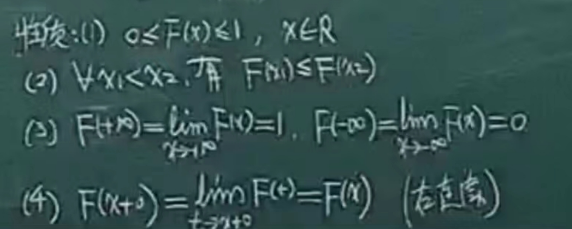 性质:(1) 0≤F(x)≤1, x∈R
(2) ∀x₁<x₂, 有 F(x₁)≤F(x₂)
(3) F(+∞)=lim F(x)=1, F(-∞)=lim F(x)=0
x→+∞ x→-∞
(4) F(x+0)=lim F(t)=F(x) (右连续)
t→x+0